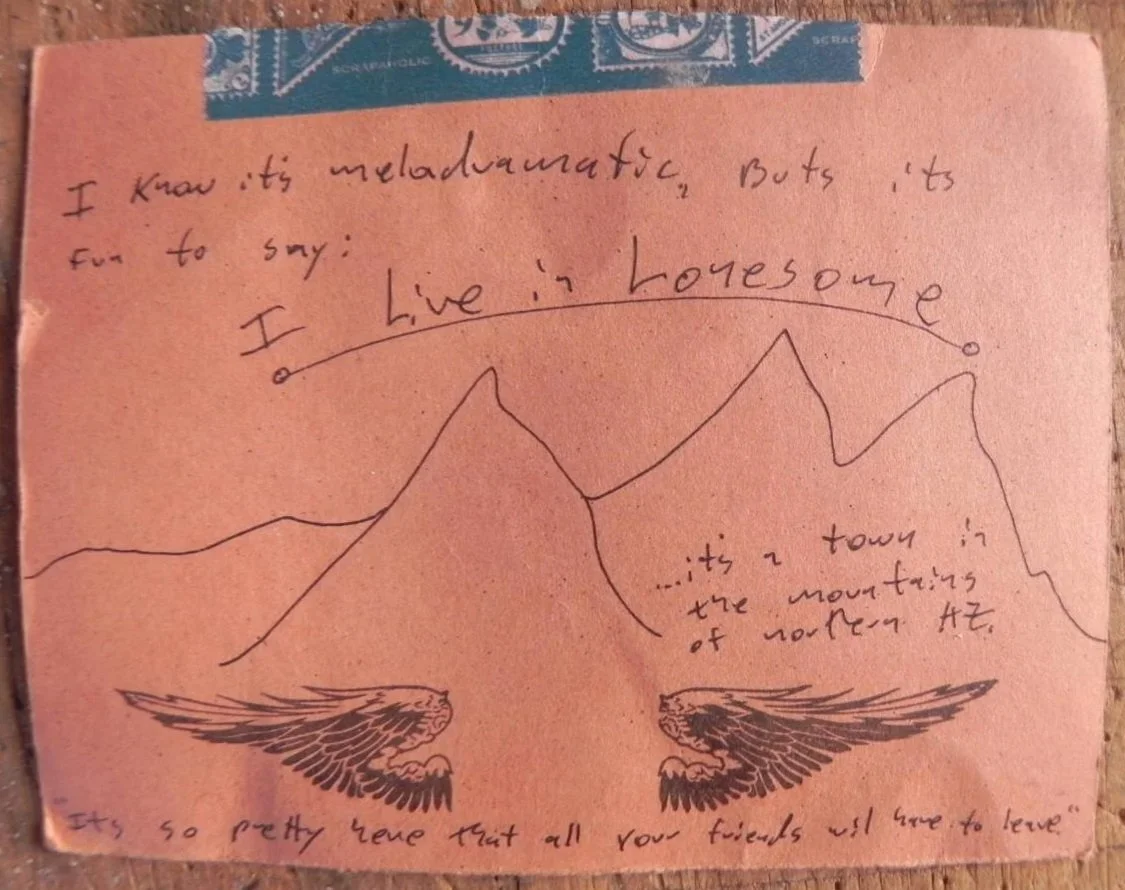 SCRAPAHOLIC
SCRAP
I Know it's meladramatic, Buts it's
Fun to say:
I Live in Lonesome
...it's a town in
the mountains
of northern AZ.
"It's so pretty here that all your friends will have to leave."